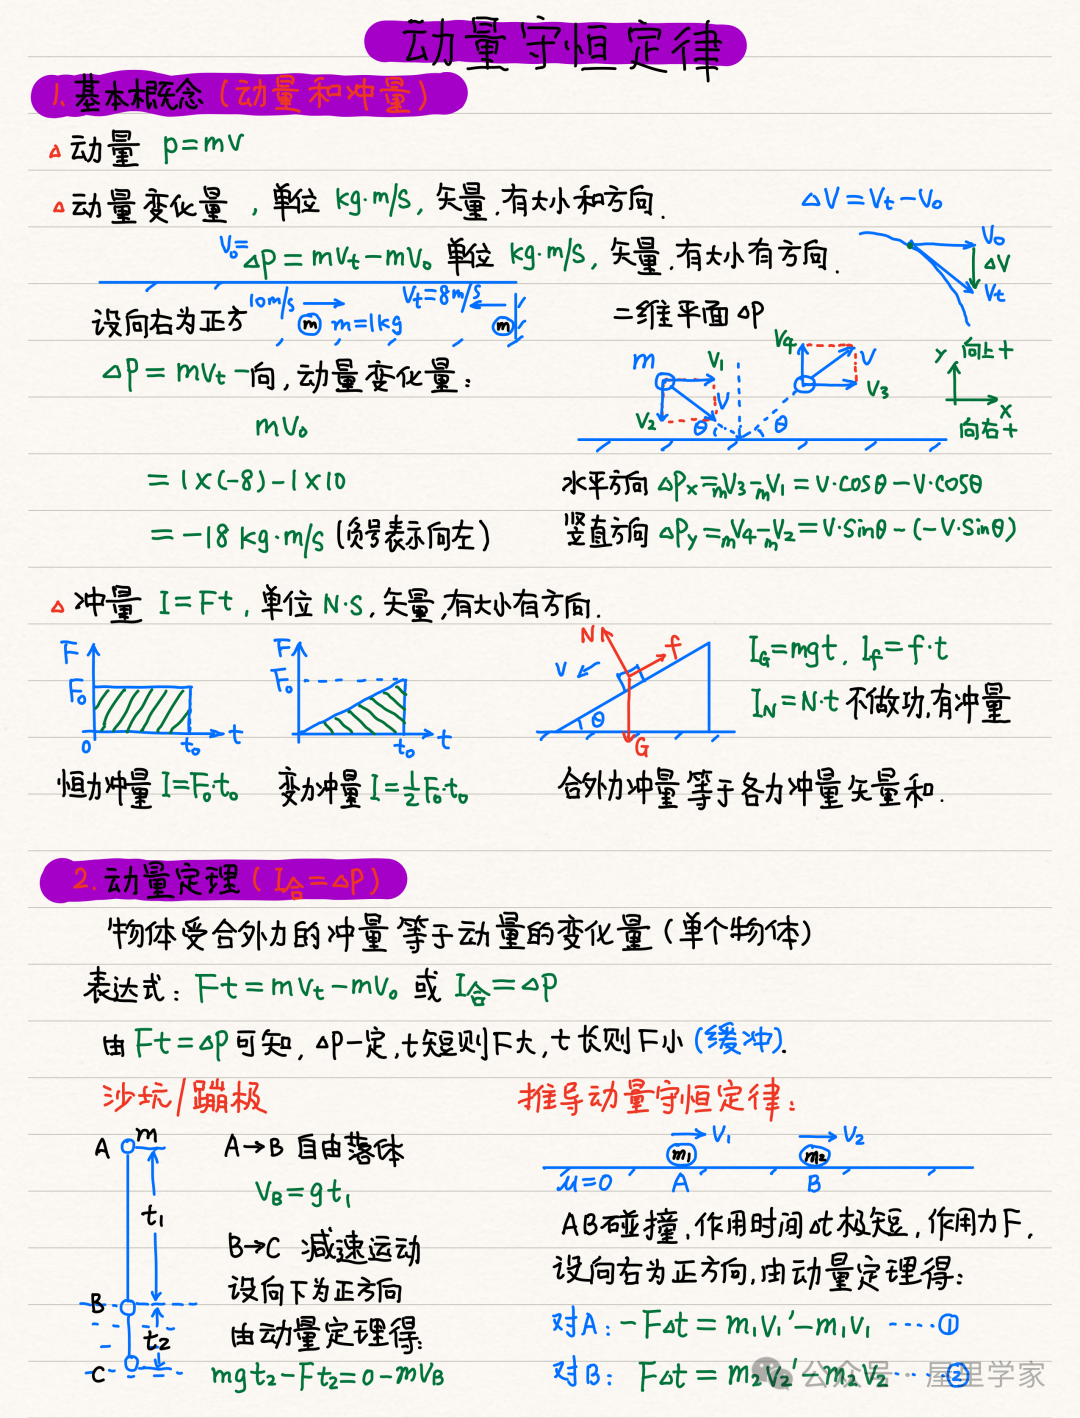 动量守恒定律
1. 基本概念(动量和冲量)
△动量 p=mv
△动量变化量,单位 kg·m/s,矢量.有大小和方向.
△V=Vt-V₀
V₀=
△p=mVt-mV₀ 单位 kg·m/s,矢量.有大小有方向.
V₀
△V
Vt
10m/s
Vt=8m/s
设向右为正方
m
m=1kg
m
二维平面 △P
△P=mVt-向,动量变化量:
mV₀
=1×(-8)-1×10
=-18 kg·m/s (负号表示向左)
m
V₁
V₂
V
θ
V₄
V
V₃
θ
Y
向上+
X
向右+
水平方向 △Px=mV₃-mV₁=V·cosθ-V·cosθ
竖直方向 △Py=mV₄-mV₂=V·Sinθ-(-V·Sinθ)
△冲量 I=Ft,单位 N·S,矢量,有大小有方向.
F
F₀
0
t₀
t
F
F₀
t₀
t
N
f
V
θ
G
I_G=mgt, I_f=f·t
I_N=N·t 不做功,有冲量
恒力冲量 I=F₀·t₀
变力冲量 I=½F₀·t₀
合外力冲量等于各力冲量矢量和.
2. 动量定理(I合=△P)
物体受合外力的冲量等于动量的变化量(单个物体)
表达式: Ft=mVt-mV₀ 或 I合=△P
由 Ft=△P 可知,△P一定,t短则F大,t长则F小(缓冲).
沙坑/蹦极
A
m
t₁
B
t₂
C
A→B 自由落体
V_B=gt₁
B→C 减速运动
设向下为正方向
由动量定理得:
mgt₂-Ft₂=0-mV_B
推导动量守恒定律:
V₁
V₂
m₁
m₂
μ=0
A
B
AB碰撞,作用时间△t极短,作用力F.
设向右为正方向,由动量定理得:
对A: -F△t=m₁V₁'-m₁V₁ ····①
对B: F△t=m₂V₂'-m₂V₂ ····②
公众号·屋里学家